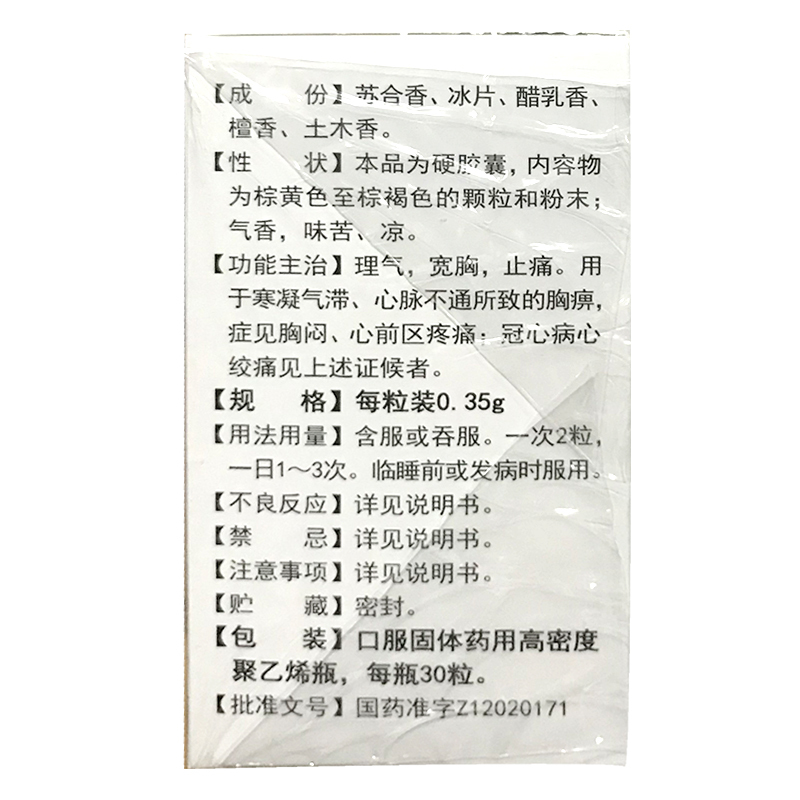 【成　份】苏合香、冰片、醋乳香、
檀香、土木香。
【性　状】本品为硬胶囊，内容物
为棕黄色至棕褐色的颗粒和粉末；
气香，味苦、凉。
【功能主治】理气，宽胸，止痛。用
于寒凝气滞、心脉不通所致的胸痹，
症见胸闷、心前区疼痛；冠心病心
绞痛见上述证候者。
【规　格】每粒装0.35g
【用法用量】含服或吞服。一次2粒，
一日1～3次。临睡前或发病时服用。
【不良反应】详见说明书。
【禁　忌】详见说明书。
【注意事项】详见说明书。
【贮　藏】密封。
【包　装】口服固体药用高密度
聚乙烯瓶，每瓶30粒。
【批准文号】国药准字Z12020171